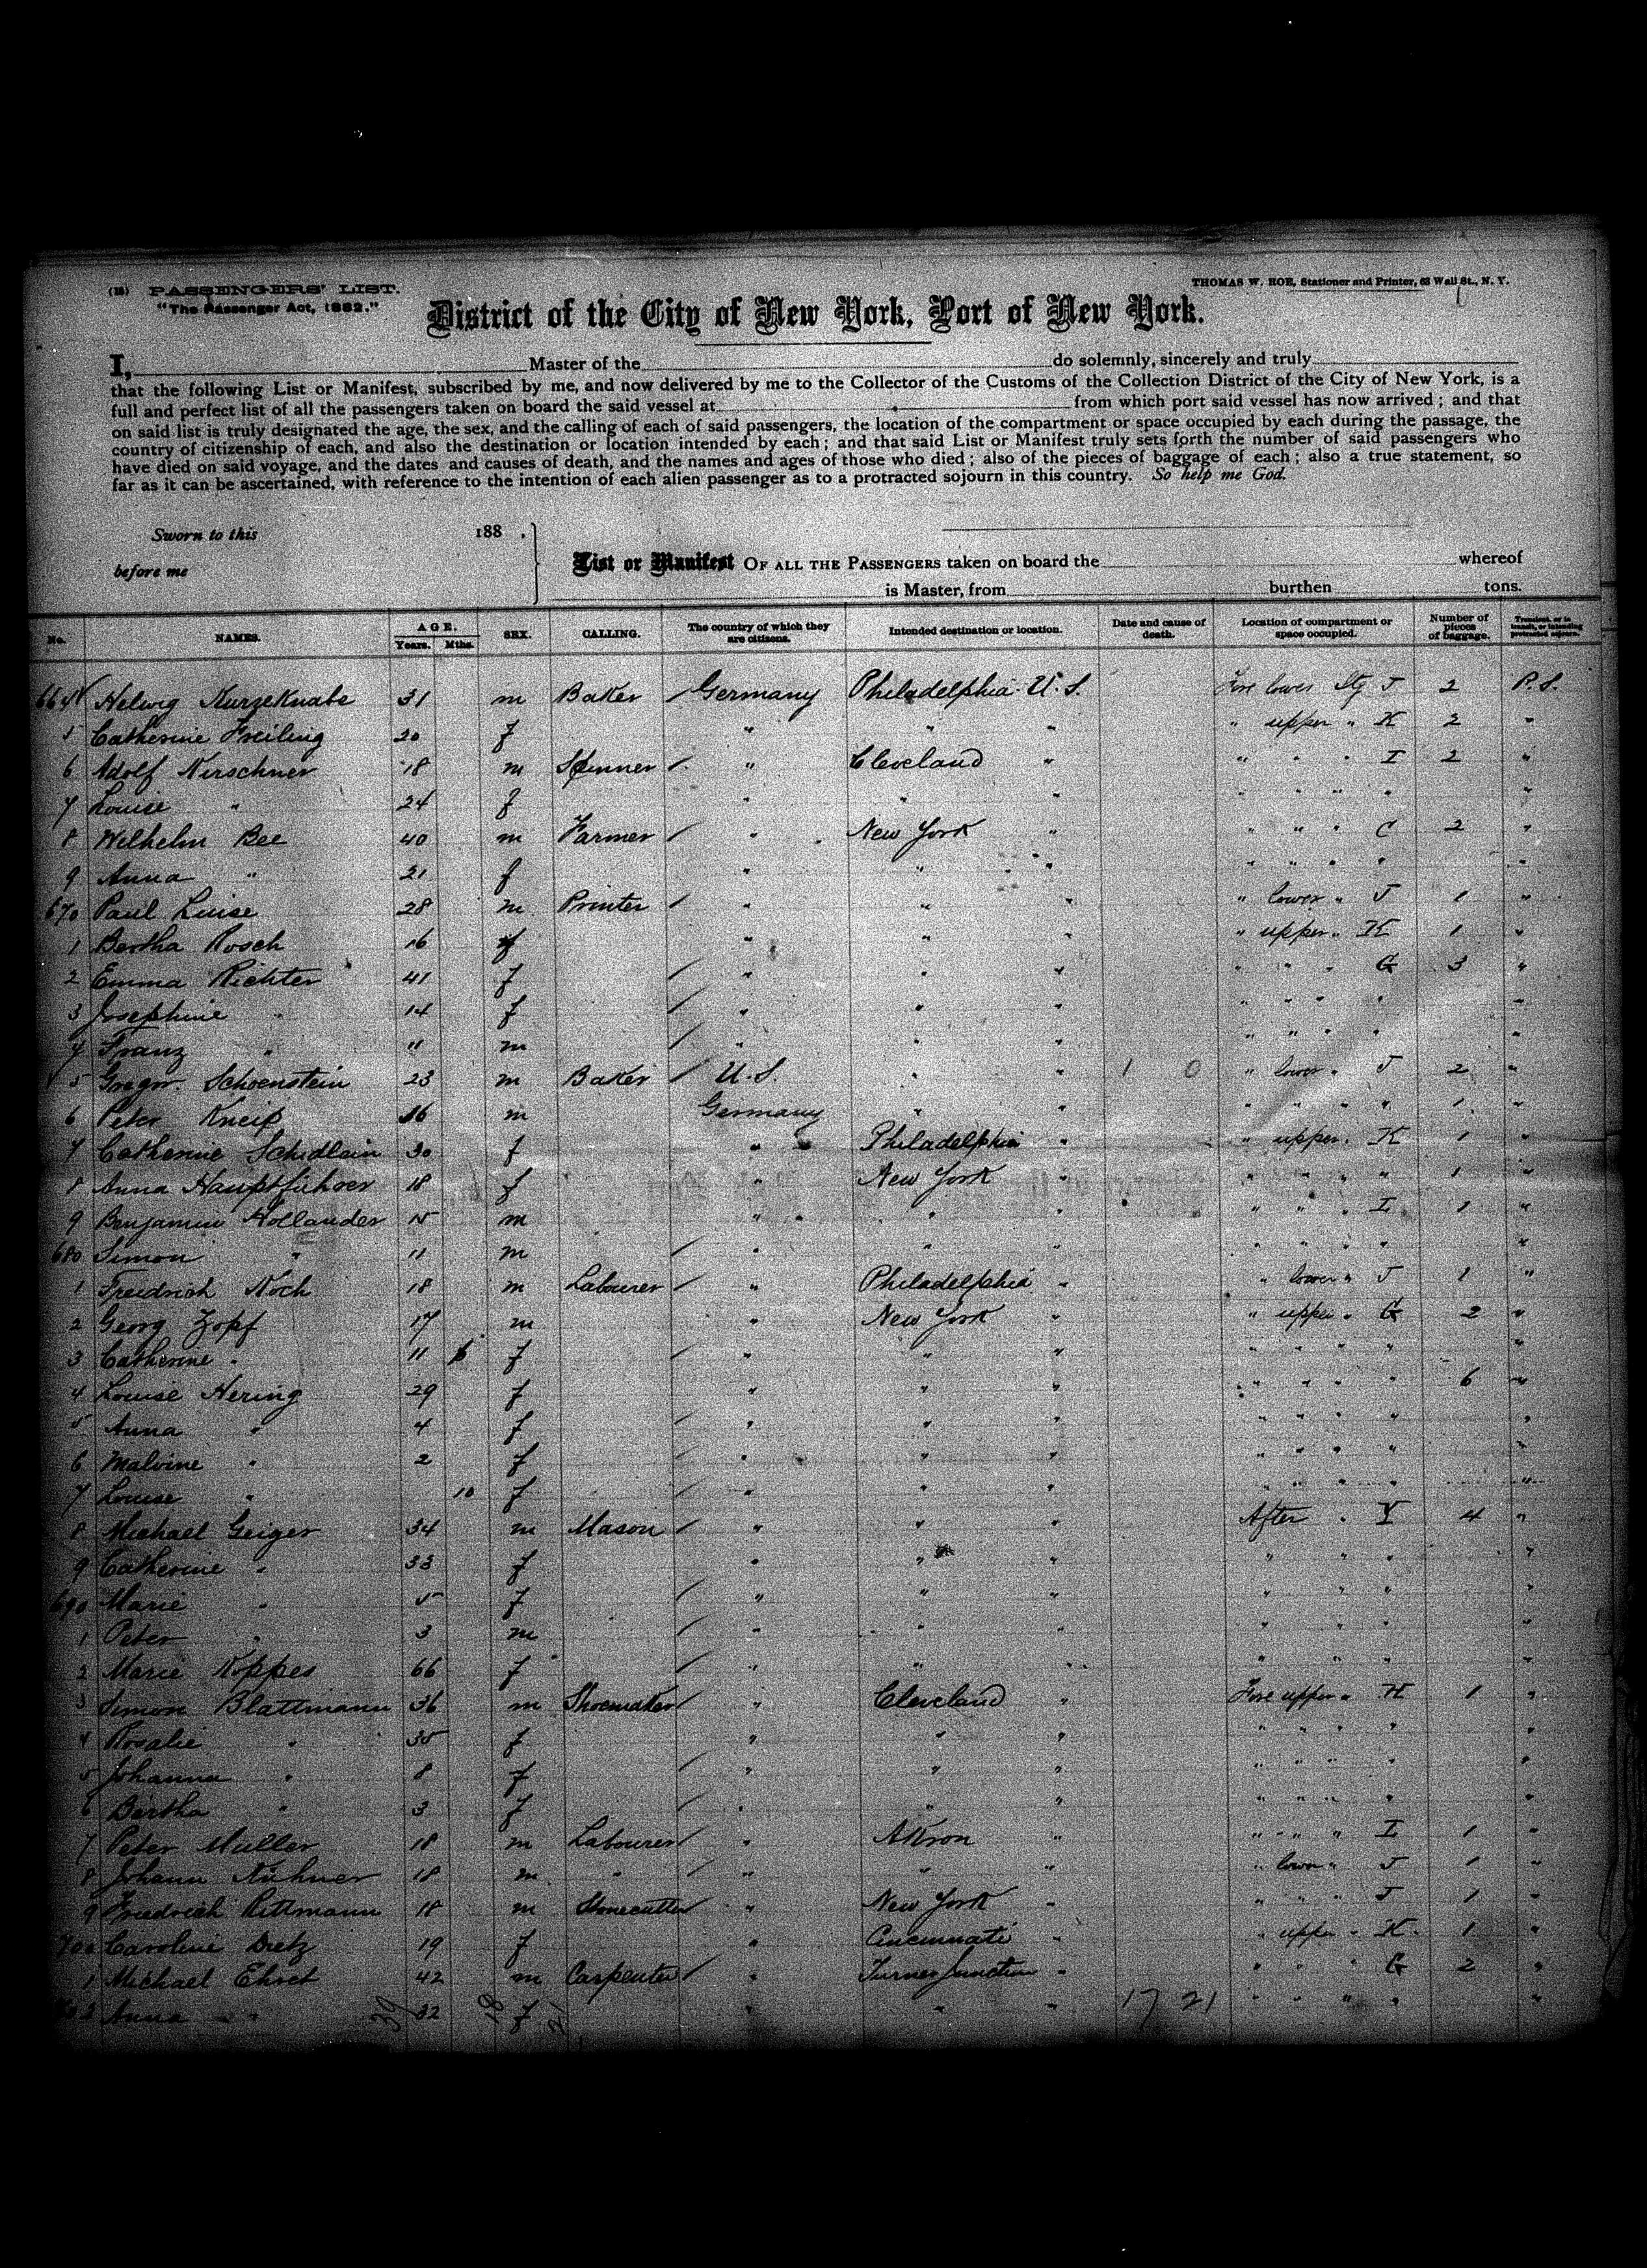 (18) PASSENGERS' LIST.
THOMAS W. ROE, Stationer and Printer, 63 Wall St., N. Y.
"The Passenger Act, 1882."
District of the City of New York, Port of New York.
I, Master of the do solemnly, sincerely and truly
that the following List or Manifest, subscribed by me, and now delivered by me to the Collector of the Customs of the Collection District of the City of New York, is a
full and perfect list of all the passengers taken on board the said vessel at from which port said vessel has now arrived; and that
on said list is truly designated the age, the sex, and the calling of each of said passengers, the location of the compartment or space occupied by each during the passage, the
country of citizenship of each, and also the destination or location intended by each; and that said List or Manifest truly sets forth the number of said passengers who
have died on said voyage, and the dates and causes of death, and the names and ages of those who died; also of the pieces of baggage of each; also a true statement, so
far as it can be ascertained, with reference to the intention of each alien passenger as to a protracted sojourn in this country. So help me God.
Sworn to this 188 .
before me
List or Manifest OF ALL THE PASSENGERS taken on board the whereof
is Master, from burthen tons.
No. NAMES. AGE. Years. Mths. SEX. CALLING. The country of which they are citizens. Intended destination or location. Date and cause of death. Location of compartment or space occupied. Number of pieces of baggage. Transient, or in transit, or intending protracted sojourn.
664 Helwig Kurzeknabe 31 m Baker Germany Philadelphia U.S. Fore lower Stg J 2 P.S.
5 Catherine Freiling 20 f " " " " upper " K 2 "
6 Adolf Kirschner 18 m Spinner " Cleveland " " " " I 2 "
7 Louise " 24 f " " " " " " " "
8 Wilhelm Bee 40 m Farmer " New York " " " " C 2 "
9 Anna " 21 f " " " " " " " "
670 Paul Luise 28 m Printer " " " " lower " J 1 "
1 Bertha Rosch 16 f " " " " upper " K 1 "
2 Emma Richter 41 f " " " " " " G 3 "
3 Josephine " 14 f " " " " " " " "
4 Franz " 11 m " " " " " " " "
5 Gregor Schoenstein 23 m Baker U.S. " " 1 0 " lower " J 2 "
6 Peter Kneip 16 m Germany " " " " " " 1 "
7 Catherine Schidlain 30 f " Philadelphia " " upper " K 1 "
8 Anna Hauptführer 18 f " New York " " " " " 1 "
9 Benjamin Hollander 15 m " " " " " " I 1 "
680 Simon " 11 m " " " " " " " "
1 Freidrich Koch 18 m Labourer " Philadelphia " " lower " J 1 "
2 Georg Zopf 17 m " New York " " upper " G 2 "
3 Catherine " 11 f " " " " " " " "
4 Louise Hering 29 f " " " " " " " 6 "
5 Anna " 4 f " " " " " " " "
6 Malvine " 2 f " " " " " " " "
7 Louise " 10 f " " " " " " " "
8 Michael Geiger 34 m Mason " " " After " Y 4 "
9 Catherine " 33 f " " " " " " "
690 Marie " 5 f " " " " " " "
1 Peter " 3 m " " " " " " "
2 Marie Koppes 66 f " " " " " " "
3 Simon Blattmann 36 m Shoemaker " Cleveland " Fore upper " H 1 "
4 Rosalie " 35 f " " " " " " " "
5 Johanna " 8 f " " " " " " " "
6 Bertha " 3 f " " " " " " " "
7 Peter Muller 18 m Labourer " Akron " " " " I 1 "
8 Johann Kühner 18 m " " " " " lower " J 1 "
9 Friedrich Rittmann 18 m Stonecutter " New York " " " " J 1 "
700 Caroline Dietz 19 f " Cincinnati " " upper " K 1 "
1 Michael Ehret 42 m Carpenter " Turner Junction " " " " G 2 "
702 Anna " 32 f " " " 17 21 " " " " "
39 18 21